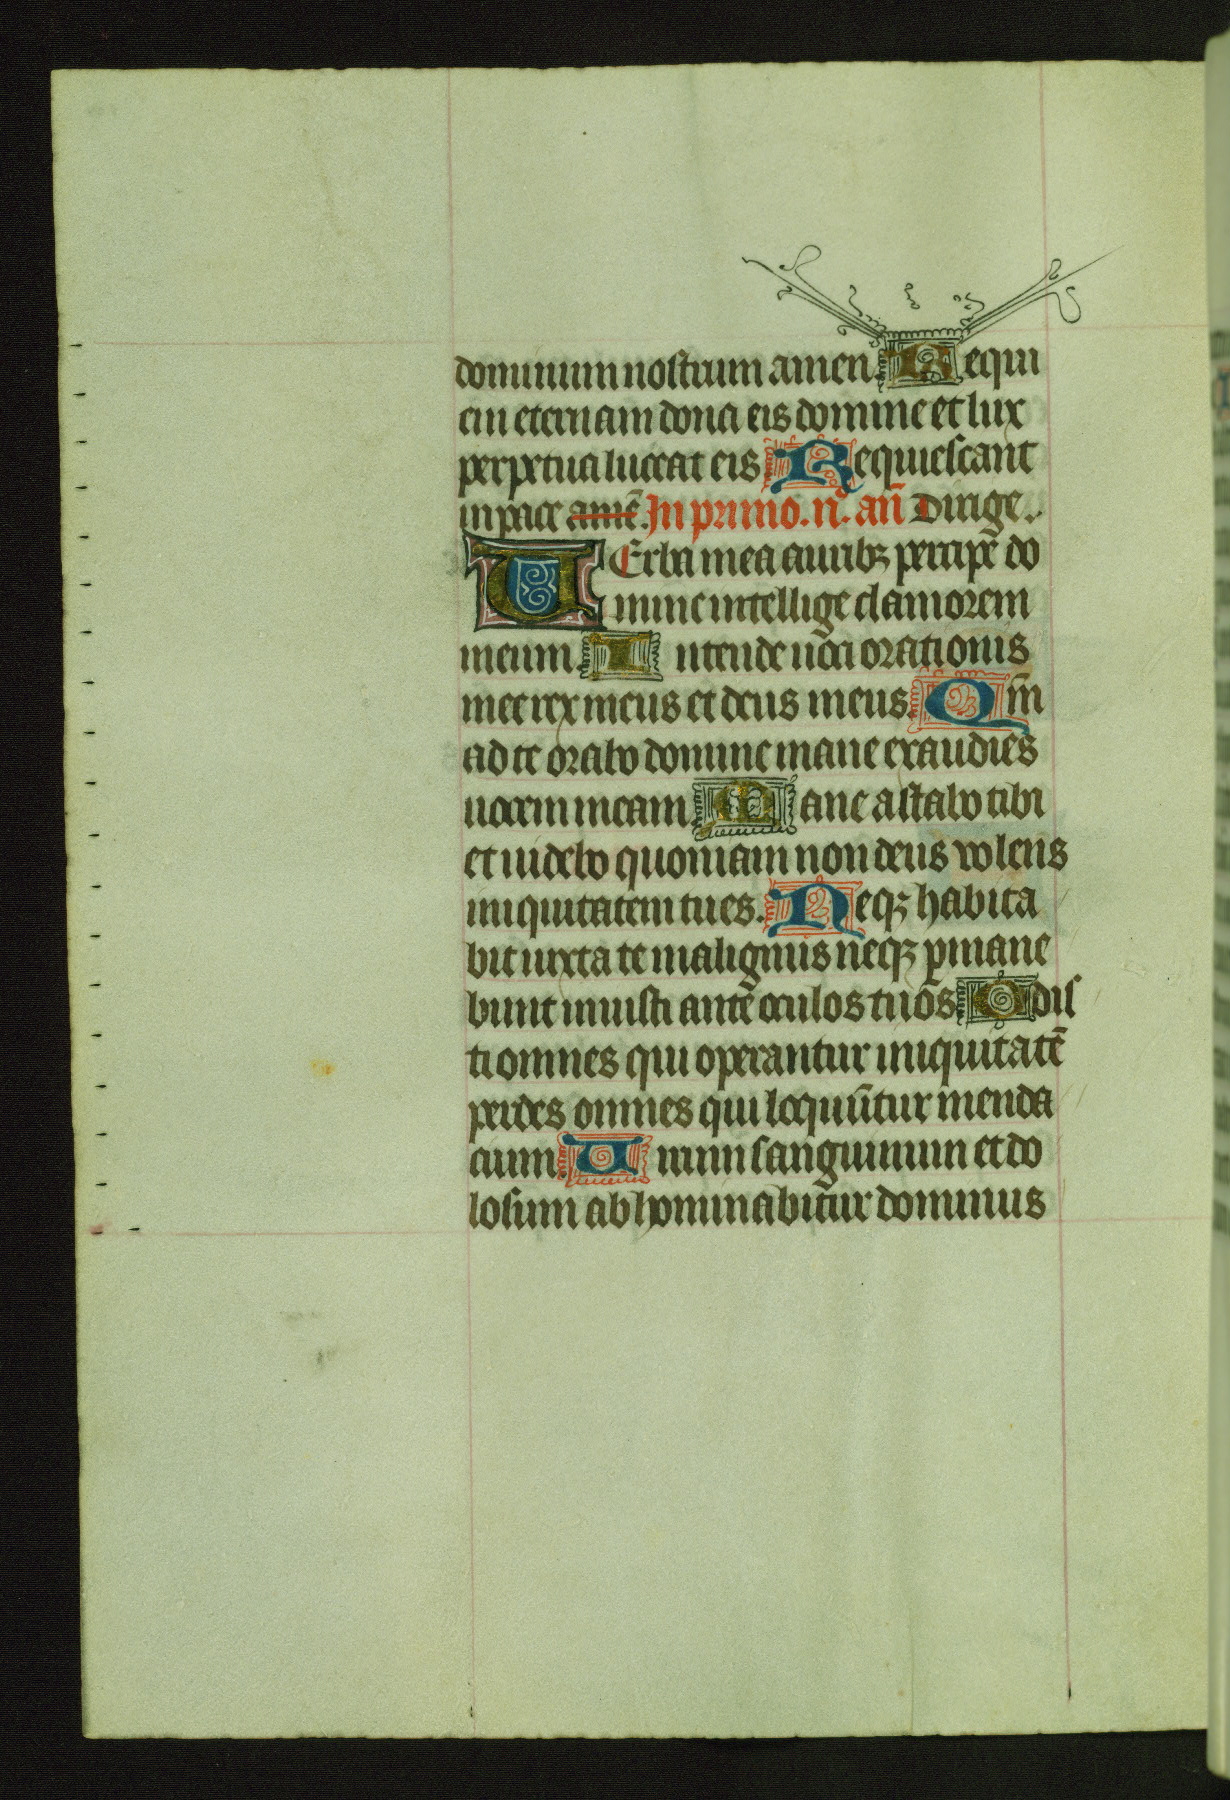 dominum nostrum amen. Requi
em eternam dona eis domine et lux
perpetua luceat eis Requiescant
in pace amē. In primo. n̄. an̄ Dirige.
UErba mea auribꝫ percipe do
mine intellige clamorem
meum. Intende uoci orationis
mee rex meus et deus meus. Qm̄
ad te orabo domine mane exaudies
uocem meam. Mane astabo tibi
et uidebo quoniam non deus volens
iniquitatem tu es. Neqꝫ habita
bit iuxta te malignus neqꝫ ꝑmane
bunt iniusti ante oculos tuos Odis
ti omnes qui operantur iniquitatē
perdes omnes qui loquūtur menda
cium. Uirum sanguinum et do
losum abhominabitur dominus